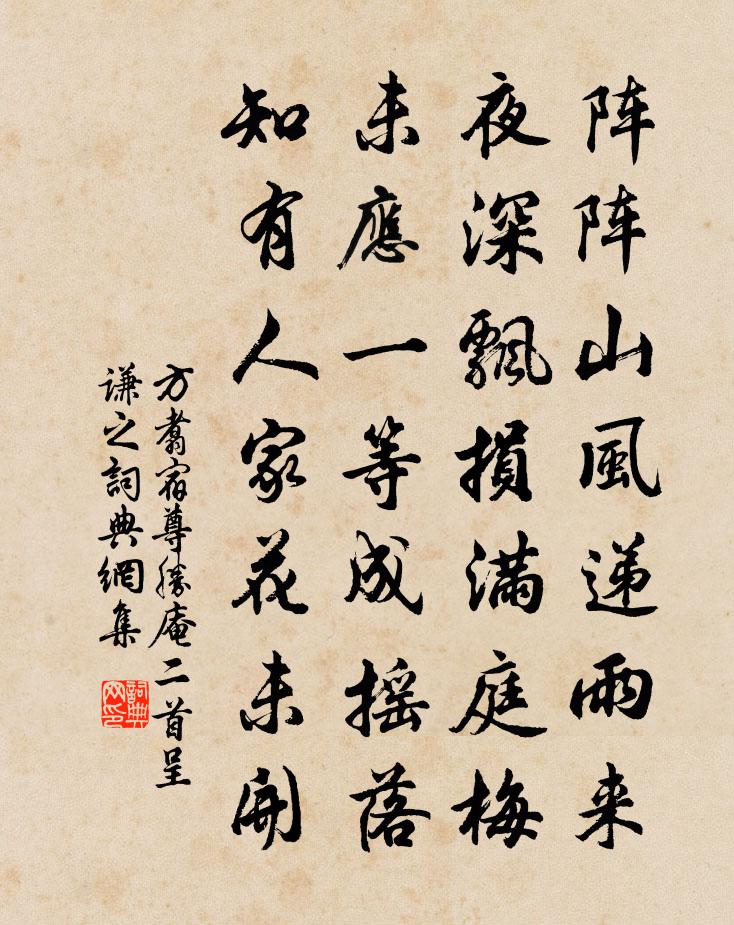 阵阵山風递雨来
夜深飄損满庭梅
未應一等成摇落
知有人家花未開
方翥宿尊勝庵二首呈
谦之詞典網集
詞典
网印